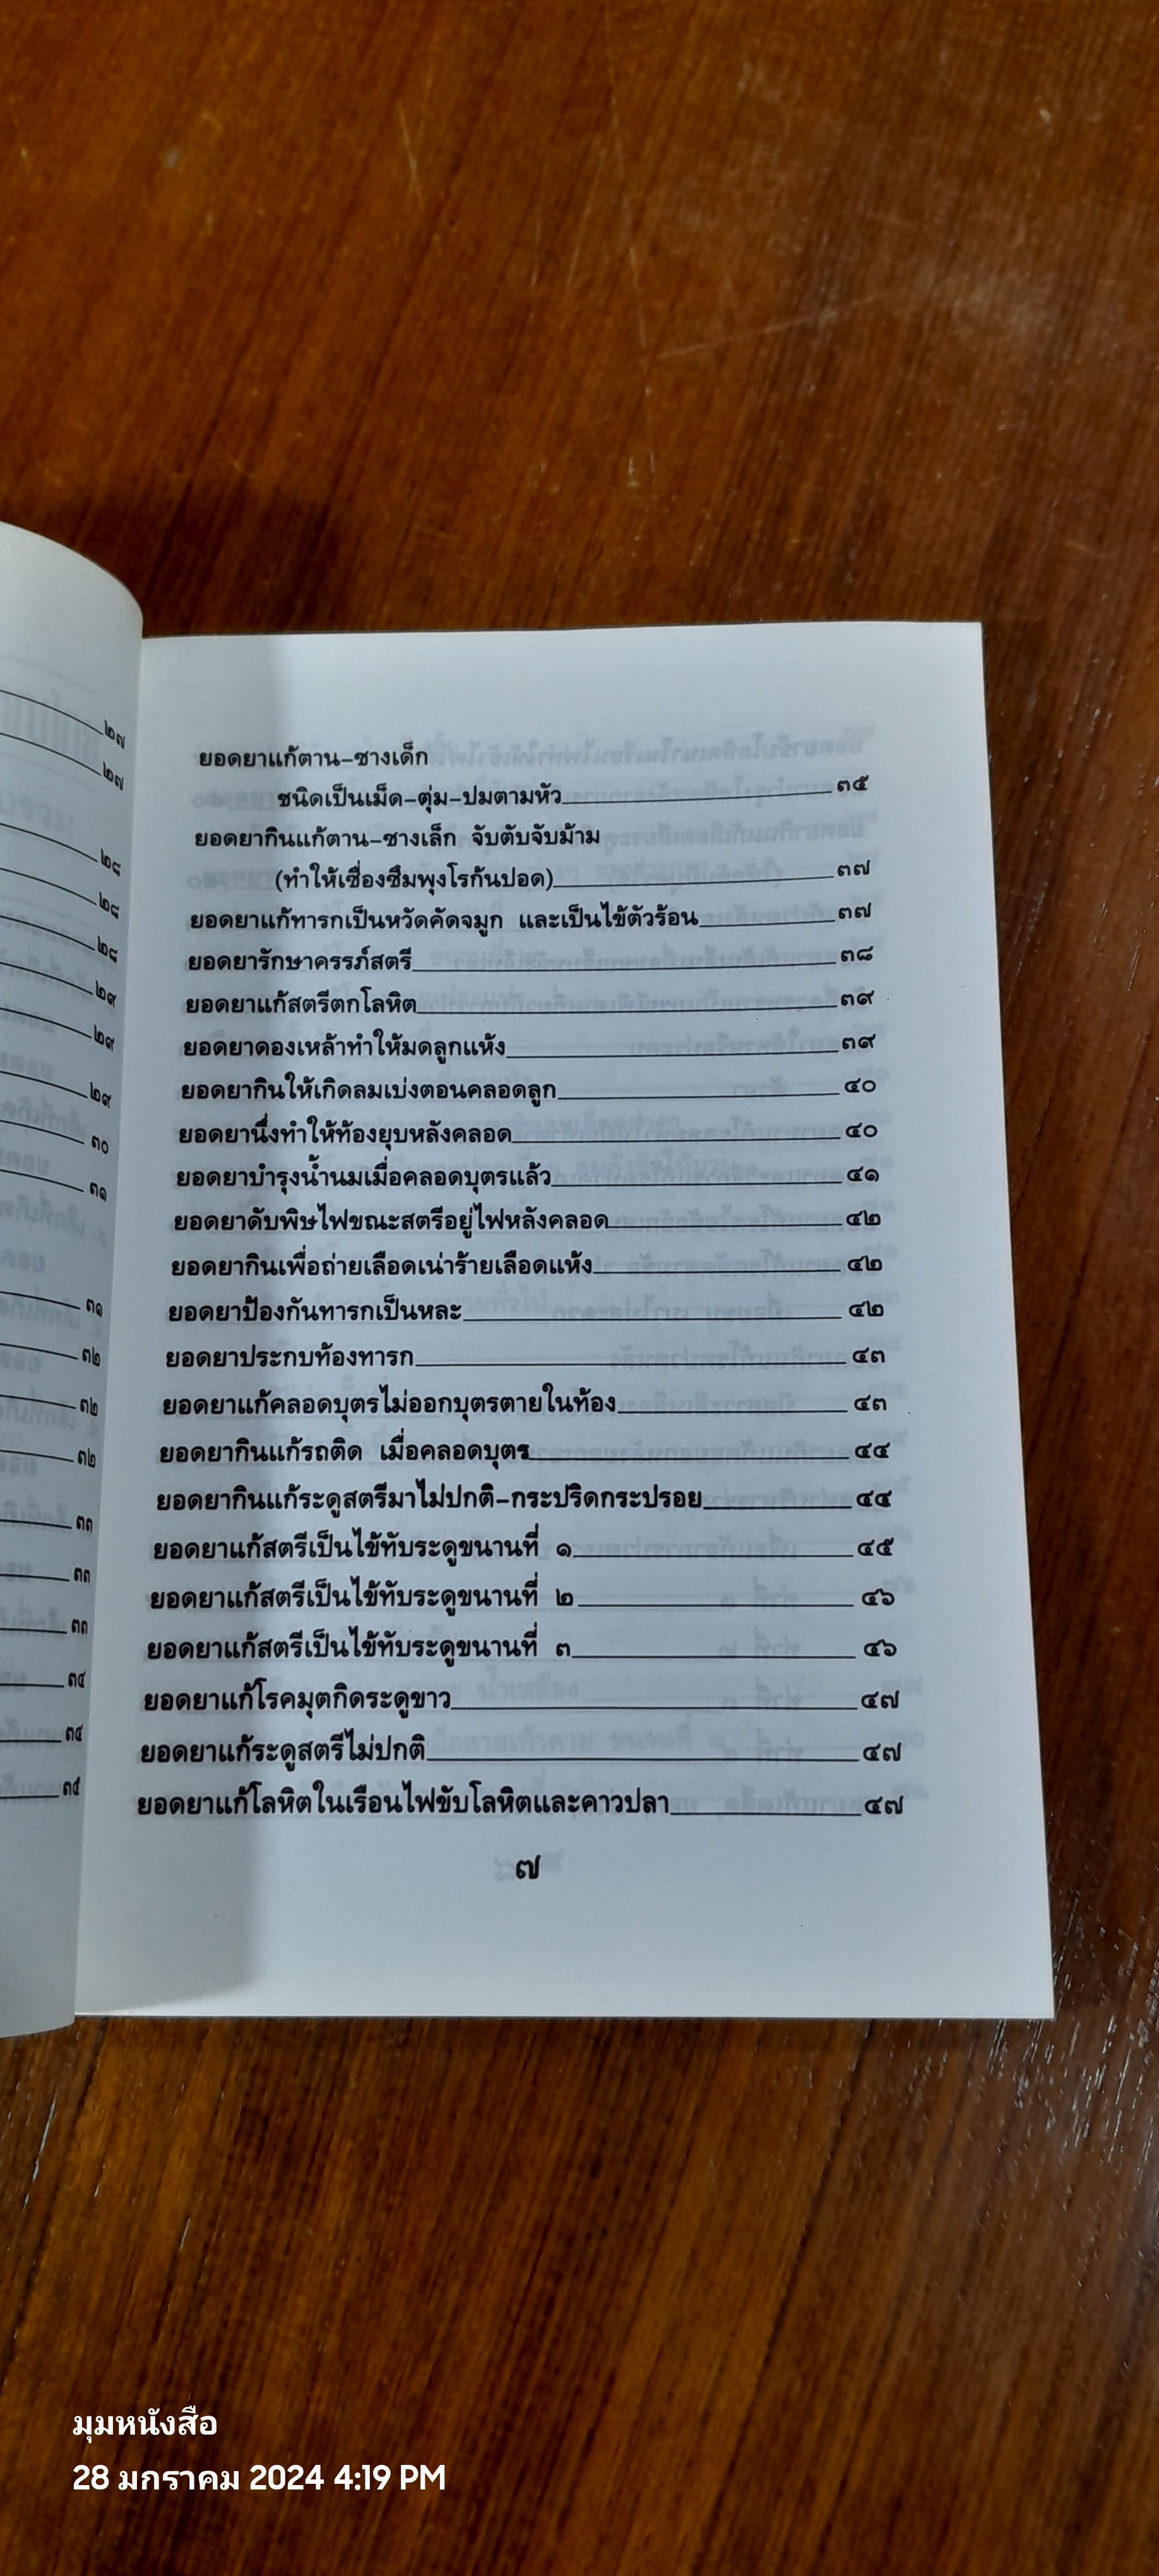 ๒๗
๒๗
๒๘
๒๘
๒๘
๒๙
๒๙
๒๙
๓๐
๓๑
๓๑
๓๒
๓๒
๓๒
๓๓
๓๓
๓๓
๓๔
๓๔
๓๕
ยอดยาแก้ตาน-ซางเด็ก
ชนิดเป็นเม็ด-ตุ่ม-ปมตามหัว ๓๕
ยอดยากินแก้ตาน-ซางเล็ก จับตับจับม้าม
(ทำให้เซื่องซึมพุงโรก้นปอด) ๓๗
ยอดยาแก้ทารกเป็นหวัดคัดจมูก และเป็นไข้ตัวร้อน ๓๗
ยอดยารักษาครรภ์สตรี ๓๘
ยอดยาแก้สตรีตกโลหิต ๓๙
ยอดยาดองเหล้าทำให้มดลูกแห้ง ๓๙
ยอดยากินให้เกิดลมเบ่งตอนคลอดลูก ๔๐
ยอดยานึ่งทำให้ท้องยุบหลังคลอด ๔๐
ยอดยาบำรุงน้ำนมเมื่อคลอดบุตรแล้ว ๔๑
ยอดยาดับพิษไฟขณะสตรีอยู่ไฟหลังคลอด ๔๒
ยอดยากินเพื่อถ่ายเลือดเน่าร้ายเลือดแห้ง ๔๒
ยอดยาป้องกันทารกเป็นหละ ๔๒
ยอดยาประกบท้องทารก ๔๓
ยอดยาแก้คลอดบุตรไม่ออกบุตรตายในท้อง ๔๓
ยอดยากินแก้รถติด เมื่อคลอดบุตร ๔๔
ยอดยากินแก้ระดูสตรีมาไม่ปกติ-กระปริดกระปรอย ๔๔
ยอดยาแก้สตรีเป็นไข้ทับระดูขนานที่ ๑ ๔๕
ยอดยาแก้สตรีเป็นไข้ทับระดูขนานที่ ๒ ๔๖
ยอดยาแก้สตรีเป็นไข้ทับระดูขนานที่ ๓ ๔๖
ยอดยาแก้โรคมุตกิดระดูขาว ๔๗
ยอดยาแก้ระดูสตรีไม่ปกติ ๔๗
ยอดยาแก้โลหิตในเรือนไฟขับโลหิตและคาวปลา ๔๗
๗
มุมหนังสือ
28 มกราคม 2024 4:19 PM